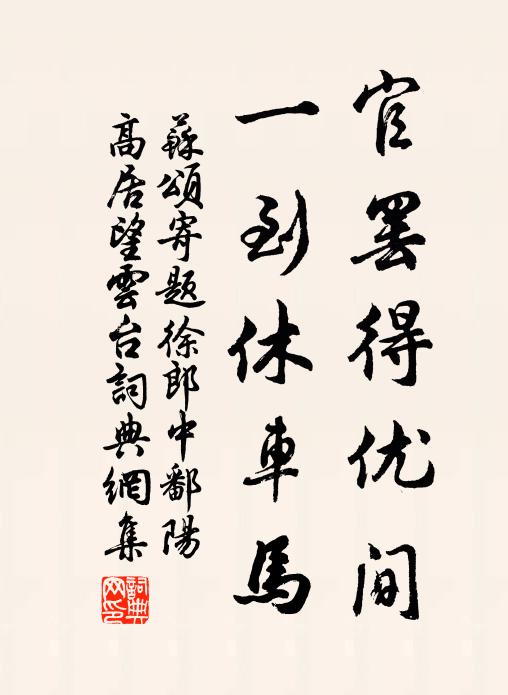 官罢得优间
一到休車馬
蘇頌寄题徐郎中鄱陽
高居望雲台詞典網集
詞典网印